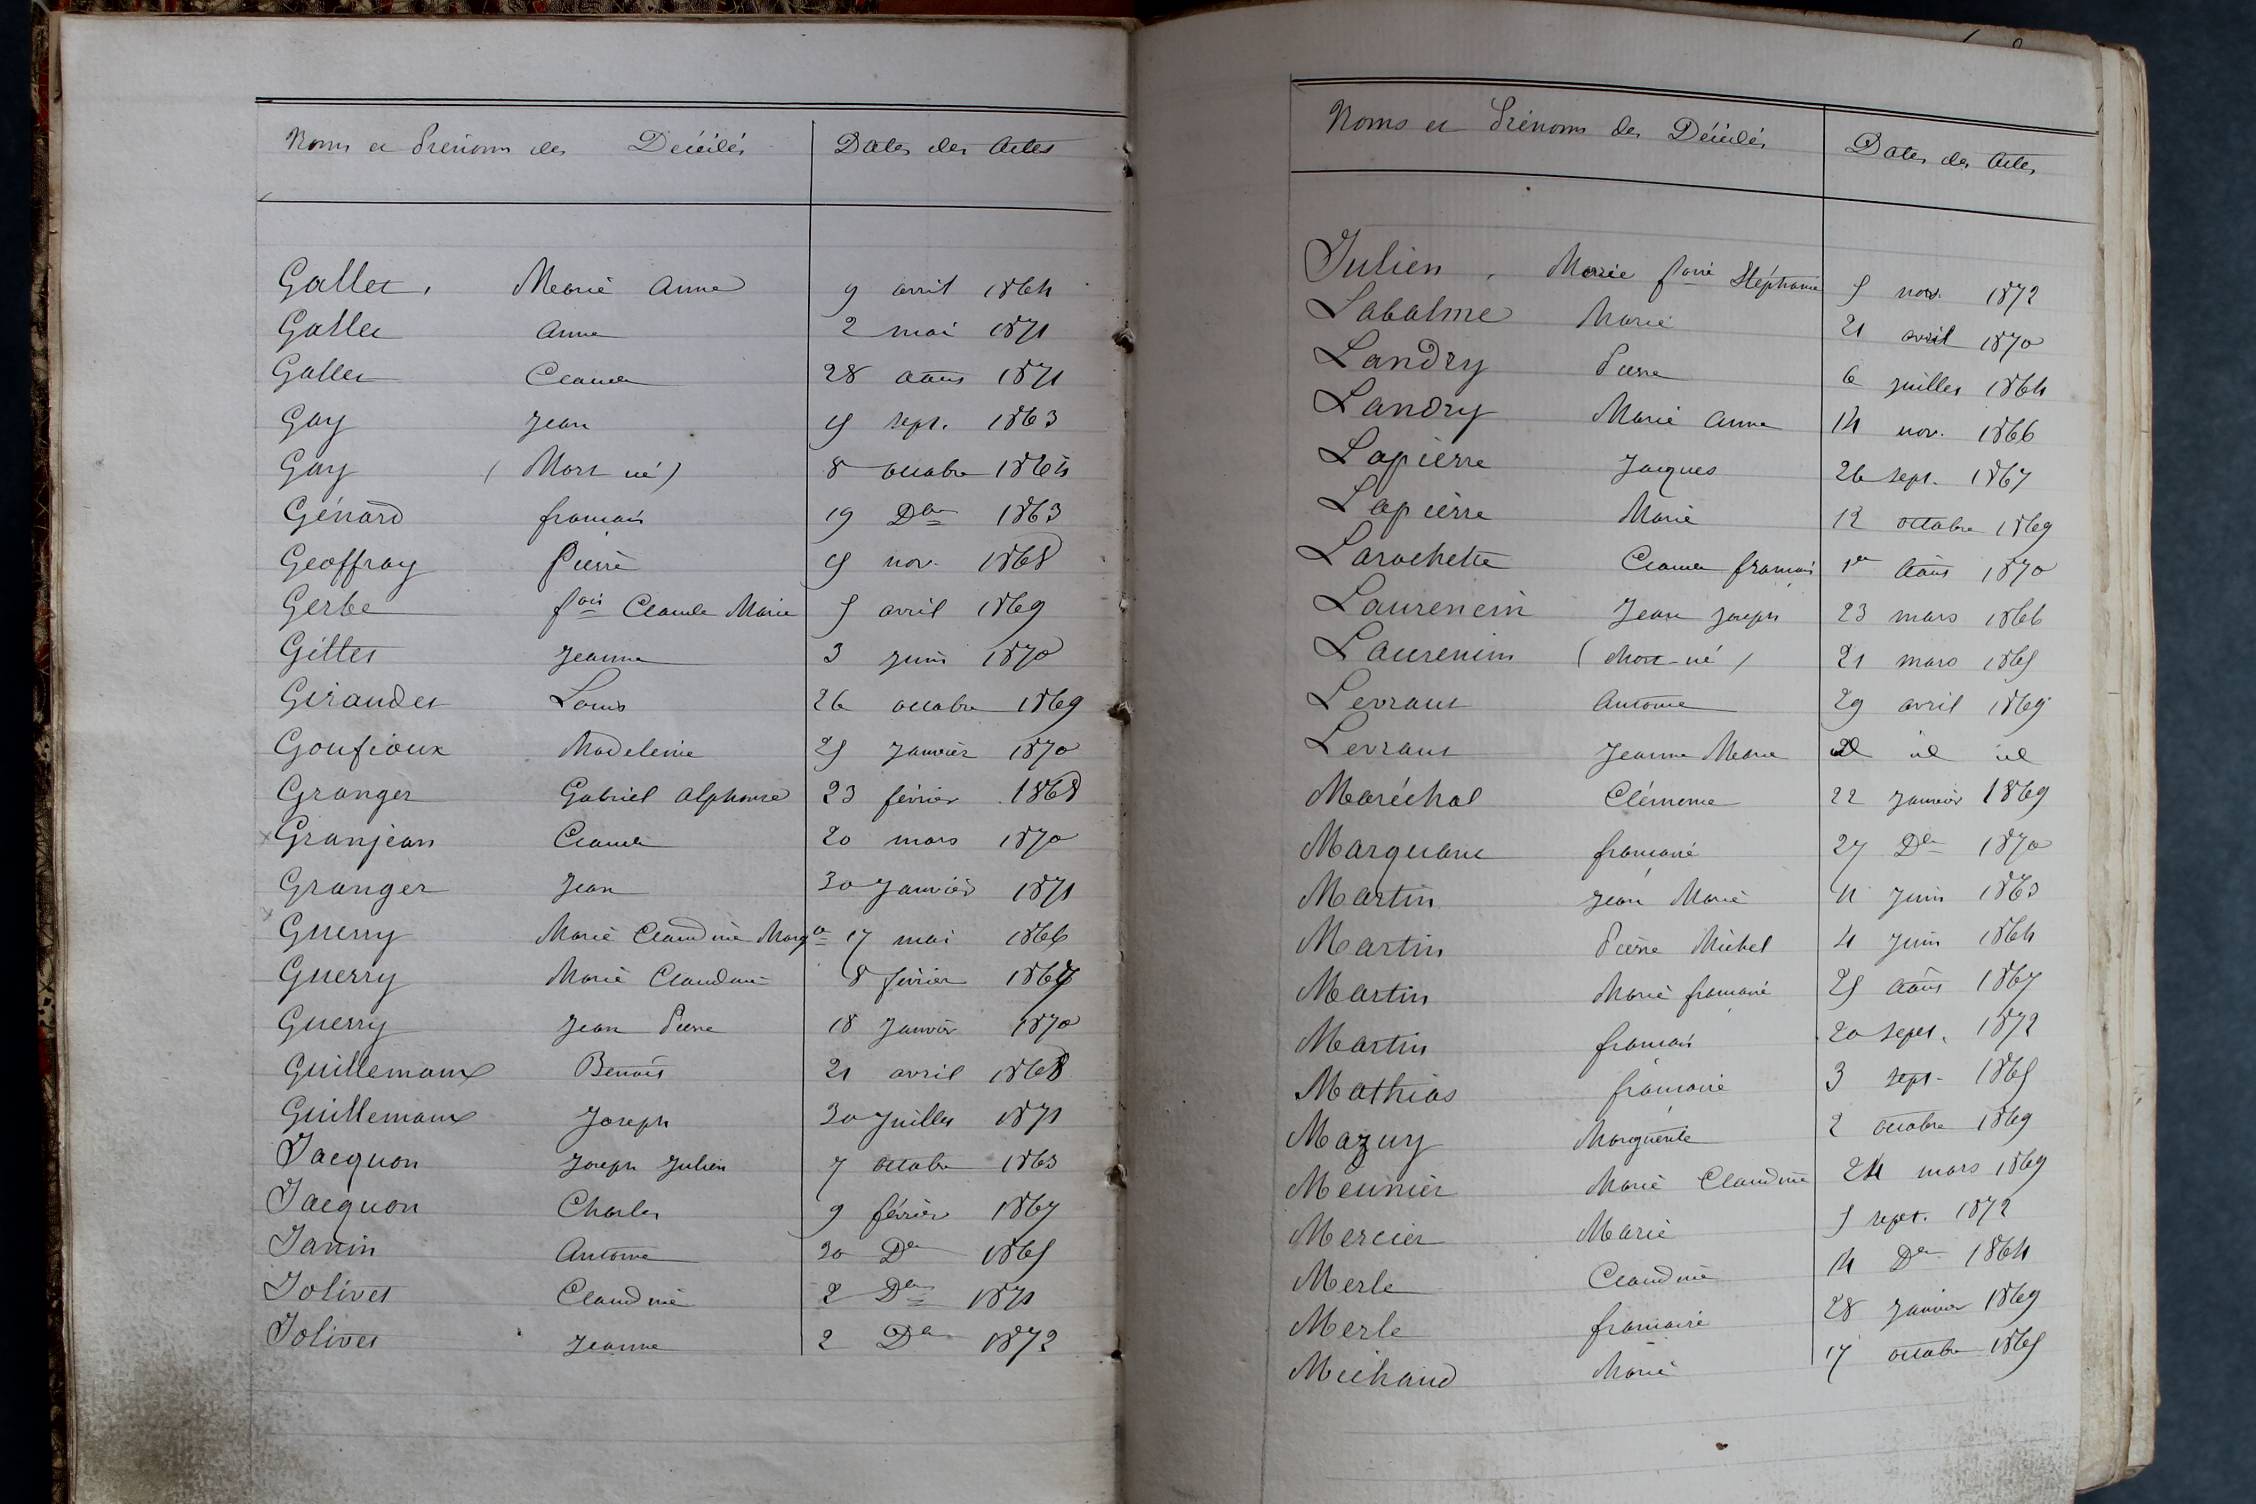 Noms et Prénoms des Décédés Dates des Actes
Gallet, Marie Anne 9 avril 1864
Gallet Anne 2 mai 1871
Gallet Claude 28 août 1871
Gay Jean 15 sept. 1863
Gay (Mort né) 8 octobre 1864
Génard françois 19 Dbre 1863
Geoffray Pierre 15 nov. 1868
Gerbe fçois Claude Marie 5 avril 1869
Gilles Jeanne 3 juin 1870
Giraudet Louis 26 octobre 1869
Goufioux Madeleine 25 janvier 1870
Granger Gabriel Alphonse 23 février 1868
Granjean Claude 20 mars 1870
Granger Jean 30 janvier 1871
Guerry Marie Claudine Margte 17 mai 1866
Guerry Marie Claudine 8 février 1867
Guerry Jean Pierre 18 janvier 1870
Guillemaux Benoit 21 avril 1868
Guillemaux Joseph 30 juillet 1871
Jacquon Joseph Julien 7 octobre 1863
Jacquon Charles 9 février 1867
Janin Antoine 20 Dbre 1865
Jolivet Claudine 2 Dbre 1871
Jolivet Jeanne 2 Dbre 1872
Noms et Prénoms des Décédés Dates des Actes
Julien, Marie fçoise Stéphanie 5 nov. 1872
Labalme Marie 21 avril 1870
Landry Pierre 6 juillet 1864
Landry Marie Anne 14 nov. 1866
Lapierre Jacques 26 sept. 1867
Lapierre Marie 12 octobre 1869
Larochette Claude françois 1er août 1870
Laurencin Jean Joseph 23 mars 1866
Laurencin (Mort-né) 21 mars 1865
Levraut Antoine 29 avril 1869
Levraut Jeanne Marie id id id
Maréchal Clémence 22 janvier 1869
Marquant françoise 27 Dbre 1870
Martin Jean Marie 11 juin 1863
Martin Pierre Michel 4 juin 1864
Martin Marie françoise 25 août 1867
Martin françois 20 sept. 1872
Mathias françoise 3 sept. 1865
Mazuy Marguerite 2 octobre 1869
Meunier Marie Claudine 24 mars 1869
Mercier Marie 5 sept. 1872
Merle Claudine 14 Dbre 1864
Merle françoise 28 janvier 1869
Michaud Marie 17 octobre 1865